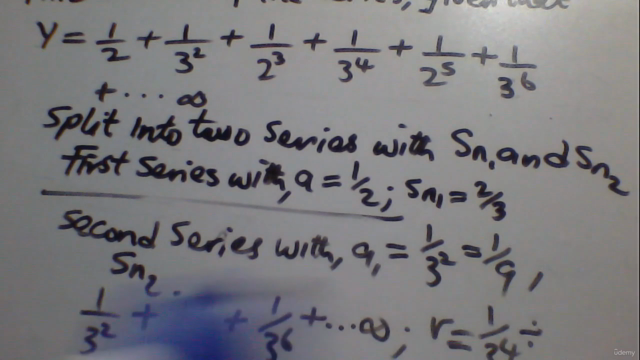 given that
Y = 1/2 + 1/3² + 1/2³ + 1/3⁴ + 1/2⁵ + 1/3⁶
+ ... ∞
Split into two series with Sn₁ and Sn₂
First series with, a = 1/2; Sn₁ = 2/3
Second series with, a₁ = 1/3² = 1/9,
Sn₂.
1/3² + + 1/3⁶ + ... ∞; r = 1/3⁴ ÷
Udemy